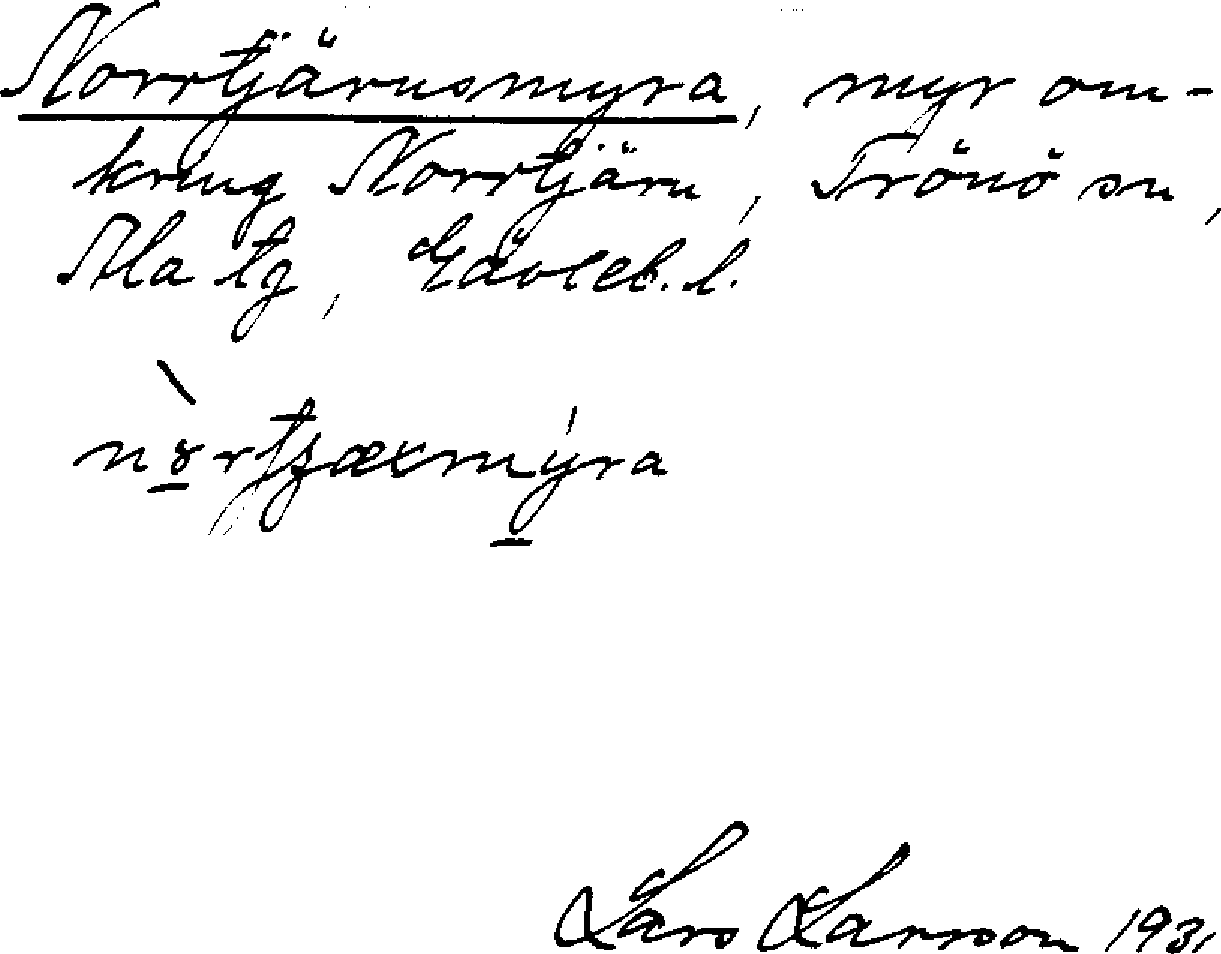 Norrtjärnsmyra, myr om-
kring Norrtjärn, Trönö sn,
Ala tg, Gävleb. l.
Lars Larsson 1931